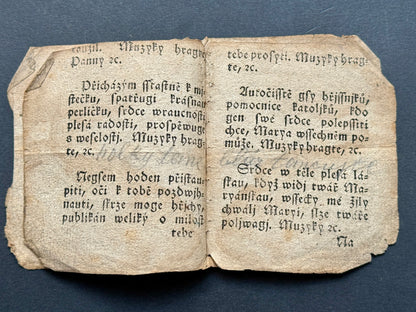 raužil. Muzyky hragte
Panny ꝛc.
Přicházým ssťastně k mi
stečku, spatřugi krásnau
perličku, srdce wraucností
plesá radostí, prospěwuge
s weselostí. Muzyky hrag-
te, ꝛc.
Negsem hoden přistau-
piti, oči k tobě pozdwih-
nauti, skrze moge hřjchy,
publikán weliký o milost
tebe
tebe prosyti. Muzyky hrag-
te, ꝛc.
Autočisstě gsy hřjssnjků,
pomocnice katoljků, kdo
gen swé srdce polepssiti
chce, Marya wssechněm po-
může. Muzyky hragte, ꝛc.
Srdce w těle plesá lá-
skau, když widj twář Ma-
ryánskau, wssecky mé žily
chwálj Maryi, slze twáře
poljwagj. Muzyky ꝛc.
Na